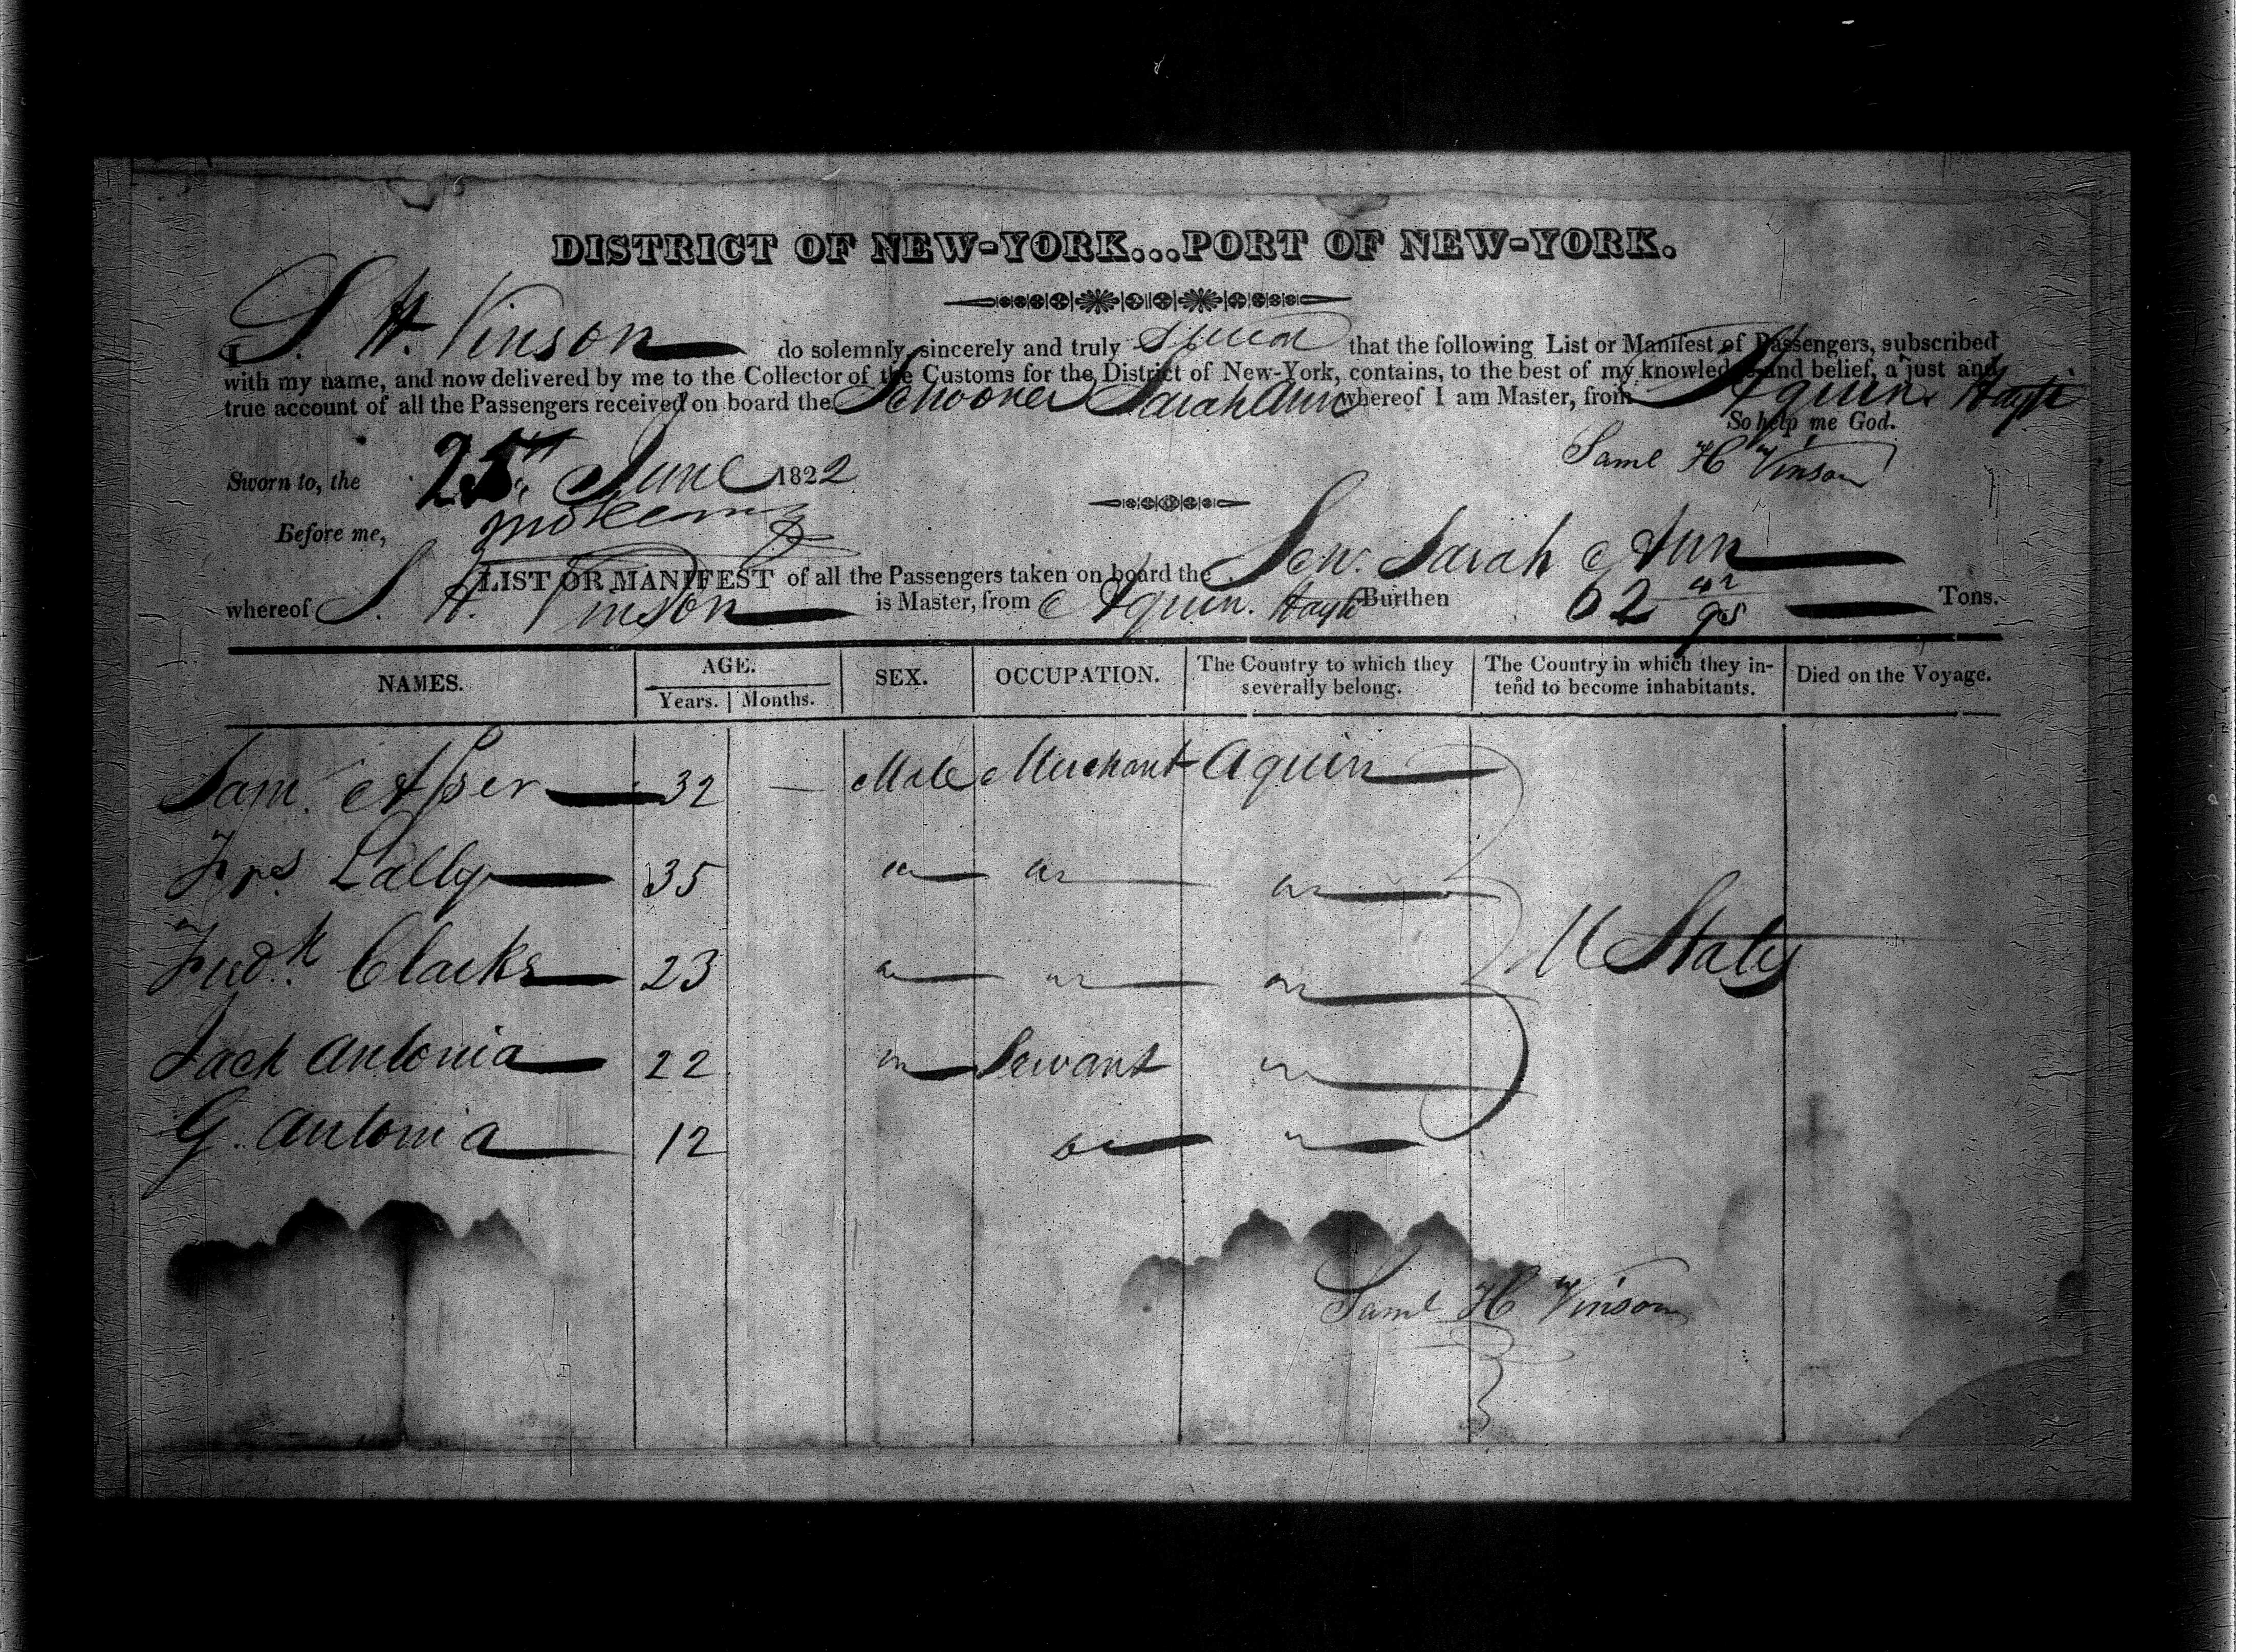 DISTRICT OF NEW-YORK...PORT OF NEW-YORK.
I S. H. Vinson do solemnly, sincerely and truly swear that the following List or Manifest of Passengers, subscribed
with my name, and now delivered by me to the Collector of the Customs for the District of New-York, contains, to the best of my knowledge and belief, a just and
true account of all the Passengers received on board the Schooner Sarah Ann whereof I am Master, from Aquin Hayti
So help me God.
Saml H Vinson
Sworn to, the 25th June 1822
Before me,
LIST OR MANIFEST of all the Passengers taken on board the Scw. Sarah Ann
whereof S. H. Vinson is Master, from Aquin. Hayti Burthen 62 42/95 Tons.
NAMES. AGE. SEX. OCCUPATION. The Country to which they severally belong. The Country in which they intend to become inhabitants. Died on the Voyage.
Years. Months.
Sam. Asser 32 — Male Merchant Aquin
Frs. Lally 35
Fredk. Clarke 23
U States
Jack Antonia 22 Servant
G. Antonia 12
Saml H Vinson